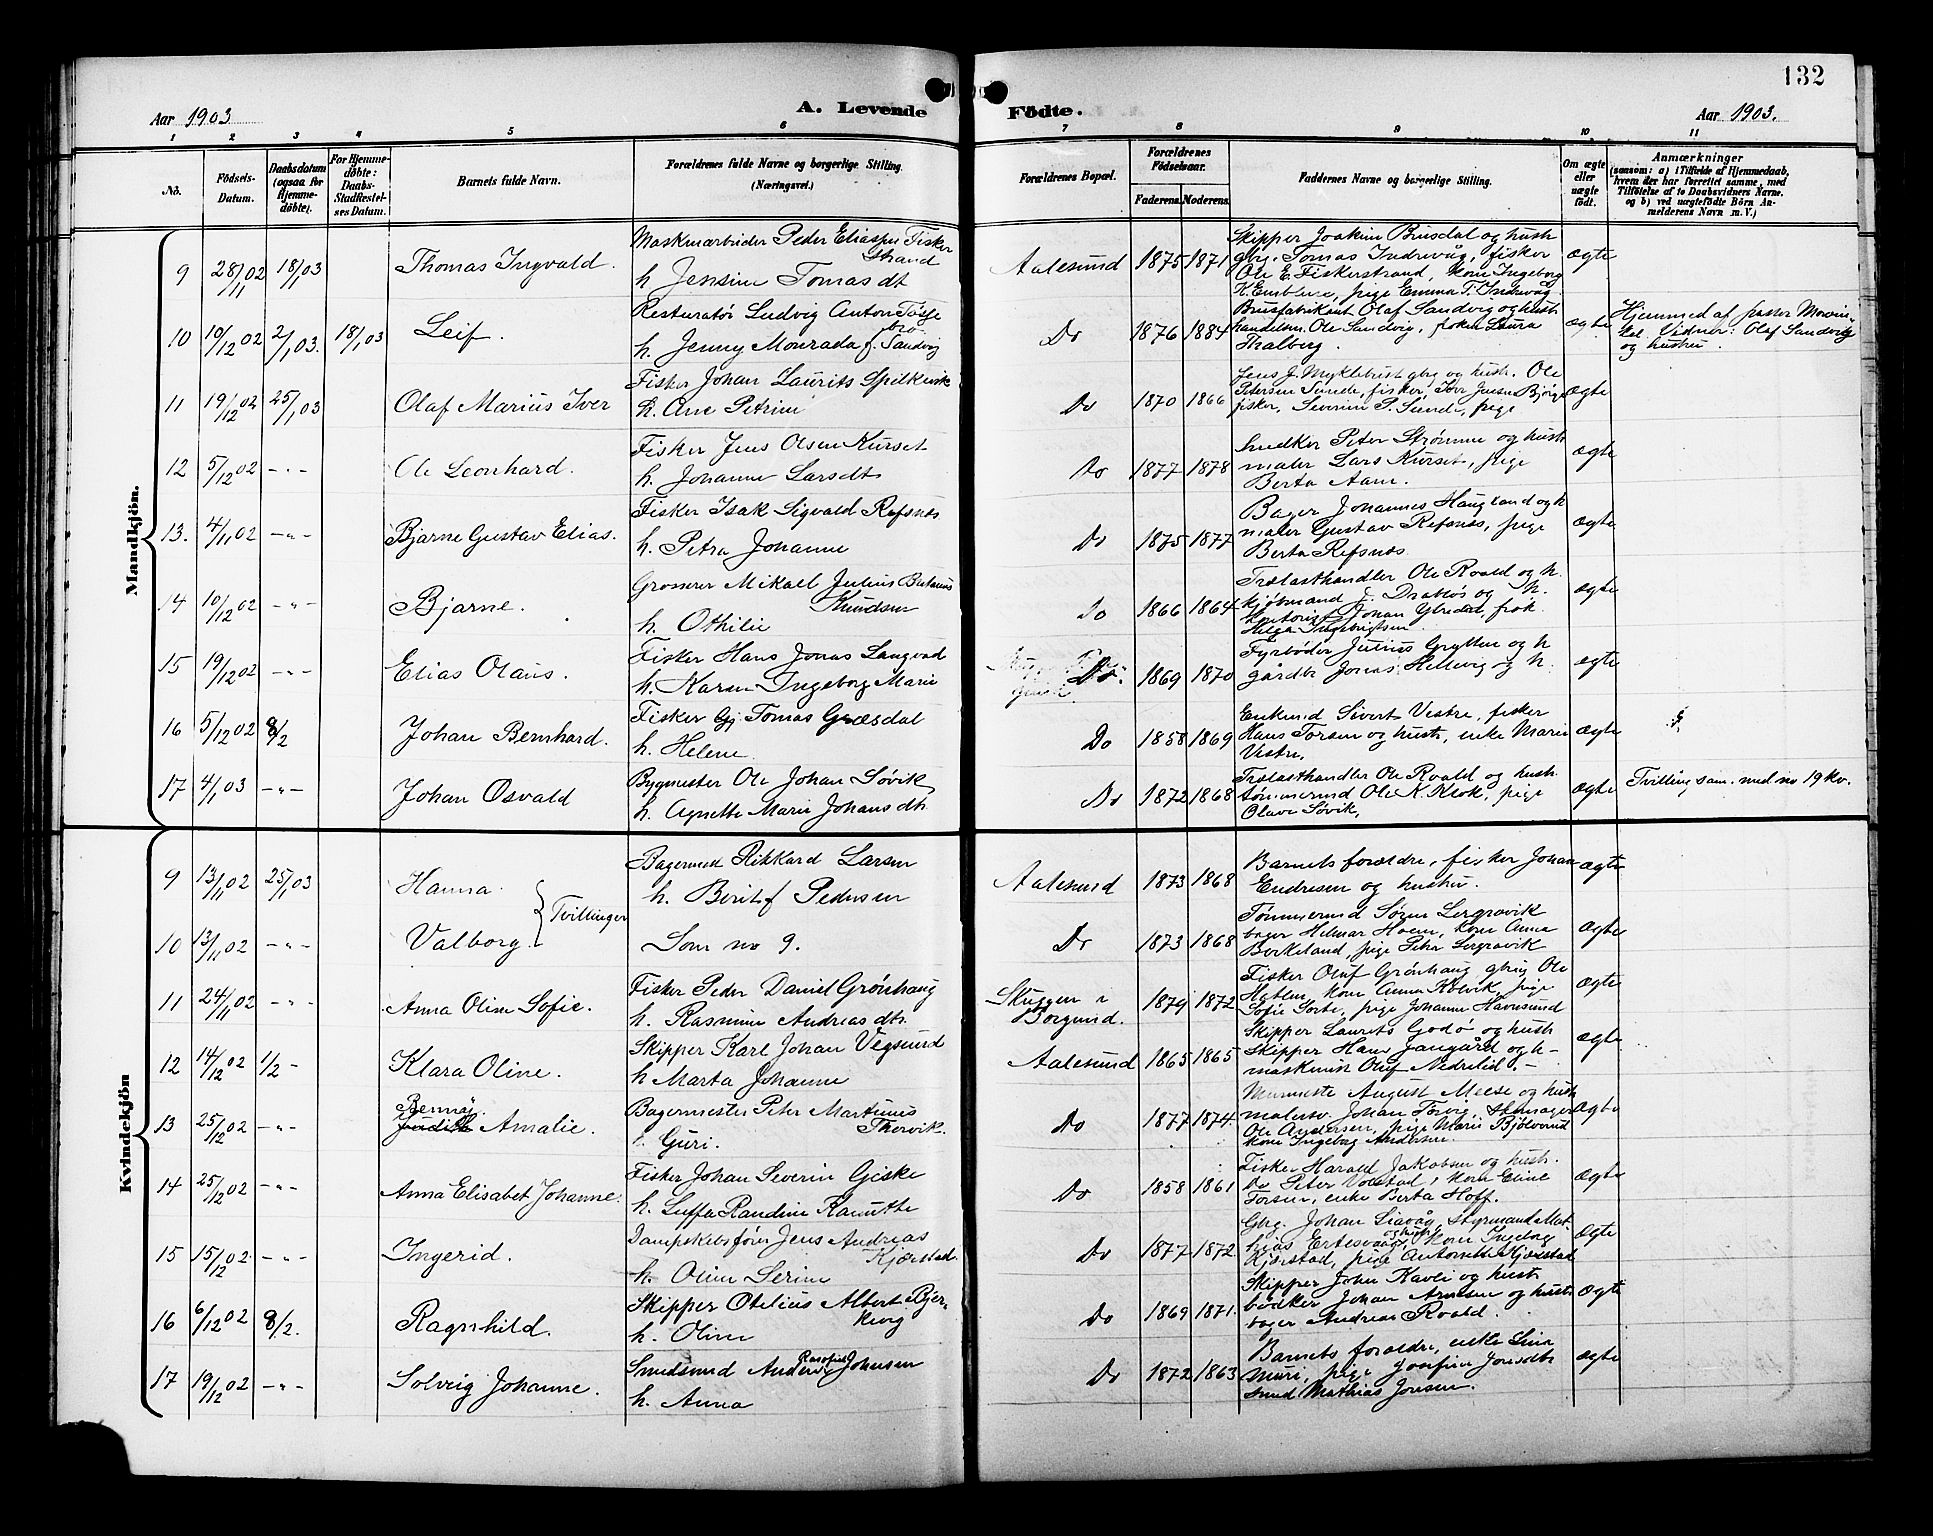 132
Aar 1903
A. Levende
Födte.
Aar 1903.
1 2 3 4 5 6 7 8 9 10 11
No.
Födsels-
Datum.
Daabsdatum
(ogsaa for
Hjemme-
døbte).
For Hjemme-
døbte:
Daabs-
Stadfæstel-
ses Datum.
Barnets fulde Navn.
Forældrenes fulde Navne og borgerlige Stilling.
(Næringsvei.)
Forældrenes Bopæl.
Forældrenes
Födselsaar.
Faderens. Moderens.
Faddernes Navne og borgerlige Stilling.
Om ægte
eller
uægte
födt.
Anmærkninger
(saasom: a) i Tilfælde af Hjemmedaab,
hvem der har forrettet samme, med
Tilföielse af to Daabsvidners Navne,
og b) ved uægtefödte Börn An-
melderens Navn m. V.)
Mandkjön.
9 28/11 02 18/1 03
Thomas Ingvald.
Maskinarbeider Peder Eliassen Fisker
strand
h. Jensine Tomasdt
Aalesund 1875 1871
Skipper Joakim Busdal og hustr
gbrg. Tomas Indrevåg, fisker
Ole E. Fiskerstrand, kone Ingeborg
K. Emblem, pige Emma T. Indrevåg.
ægte
10 10/12 02 2/1 03. 18/1 03
Leif.
Resturatør Ludvig Anton Tosse
bro
h. Jenny Monrada f. Sandvig
Do 1876 1884
Brusfabrikant Olaf Sandvig og hustr
handelsm. Ole Sandvig, frøken Laura
Thalberg.
ægte
Hjemmed. af pastor Movin-
kel. Vidner: Olaf Sandvig
og hustru.
11 19/12 02 25/1 03
Olaf Marius Iver
Fisker Johan Laurits Spilkevik
h. Ane Petrine
Do 1870 1866
Jens J. Myklebust gbrg og hust. Ole
Petersen Sunde, fisker, Iver Jensen Bjørge
fisker, Severine P. Sunde, pige
ægte
12 5/12 02 - " -
Ole Leonhard.
Fisker Jens Olsen Kurset
h. Johanne Larsdt
Do 1877 1878
Snedker Peter Strømme og hustr
maler Lars Kurset, pige
Berta Aam.
ægte
13. 4/11 02 - " -
Bjarne Gustav Elias.
Fisker Isak Sigvald Refsnæs.
h. Petra Johanne
Do 1875 1877
Bager Johannes Haugland og h
maler Gustav Refsnæs, pige
Berta Refsnæs.
ægte
14 10/12 02 - " -
Bjarne.
Grosserer Mikael Julius
Knudsen
h. Othilie
Do 1866 1864
Trælasthandler Ole Roald og h.
kjøbmand J. Drabløs og h.
kontorist Johan, frøk.
Helga Ingebrigtsen
ægte
15 19/12 02 - " -
Elias Olaus.
Fisker Hans Jonas Langvad
h. Karen Ingeborg Marie
Do. 1869 1870
Fyrbøder Julius Grytten og h
gårdbr Jonas Hellevig og h.
ægte
16 5/12 02 8/2
Johan Bernhard.
Fisker Gj. Tomas Græsdal
h. Helene
Do 1858 1869
Enkemd Sivert Vestre, fisker
Hans Torsen og hustr, enke Marie
Vestre,
ægte
17 4/1 03 - " -
Johan Osvald
Bygmester Ole Johan Søvik,
h. Agnette Marie Johansdt.
Do 1872 1868
Trælasthandler Ole Roald og hust.
tømmermd Ole K. Klok, pige
Olave Søvik,
ægte
Tvilling sam. med no 19 Kv.
Kvindekjön
9 13/11 02 25/1 03
Hanna.
Tvillinger
Bagermed Rikkard Larsen
h. Berit f. Pedersen
Aalesund 1873 1868
Barnets forældre, fisker Johan
Endresen og hustru.
ægte
10 13/11 02 - " -
Valborg.
Som no 9.
Do 1873 1868
Tømmermd Søren Sergravik
bager Helmar Hoem, kone Anna
Birkeland, pige Petra Sergravik
ægte
11 24/11 02 - " -
Anna Oline Sofie.
Fisker Peder Daniel Grønhaug
h. Rasmine Andreasdtr.
Skuggen i
Borgund.
1879 1872
Fisker Oluf Grønhaug, gbrg Ole
Hatlem, kone Anna Rolvik, pige
Sofie Sorte, pige Johanne Havnsund
ægte
12 14/12 02 1/2 -
Klara Oline.
Skipper Karl Johan Vegsund
h Marta Johanne
Aalesund 1865 1865
Skipper Laurits Godø og hustr
Skipper Hans Jangård og h -
maskinist Oluf Nedrelid. -
ægte
13 25/12 02 - " -
Bennøj.
Judith Amalie.
Bagermester Peter Martinus
Thorvik.
h. Guri.
Do 1877 1874.
Murmeste August Meese og hustr
malersv. Johan Torvig, skomager
Ole Andersen, pige Marie Bjølvrud
kone Ingeborg Andersen.
ægte
14 25/12 02 - " -
Anna Elisabet Johanne.
Fisker Johan Severin Giske
h. Luffa Randine Kanutte
Do 1858 1861
Fisker Harald Jakobsen og hustr.
Do Peter Volstad, kone Eline
Torsen, enke Berta Hoff.
ægte
15 15/12 02 - " -
Ingerid.
Dampskibsfører Jens Andreas
Kjørstad.
h. Oline Serine
Do 1877 1872
Gbrg. Johan Liavåg, styrmand Mat
hias Ertesvaag og hustr, kone Ingeborg
Kjørstad, pige Antonette Kjørstad
ægte
16 6/12 02 8/2.
Ragnhild.
Skipper Otelius Albert Bjer
king
h. Oline
Do 1869 1871.
Skipper John Kavli og hustr
bødker Johan Arnesen og hustr
bager Andreas Roald.
ægte
17 19/12 02 - " -
Solveig Johanne.
Smedsvend Anders Johnsen
h. Anna
Do 1872 1863
Barnets forældre, enke Lina
Muri, pige Josefine Jonsdtr
smed Mathias Jonsen.
ægte